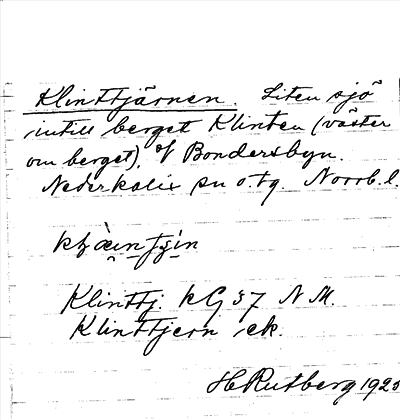 Klinttjärnen. Liten sjö
intill berget Klinten (väster
om berget), Bondersbyn.
Nederkalix sn o. tg. Norrb. l.
Klinttj. kG 37 N M.
Klinttjern ek.
H Rutberg 192